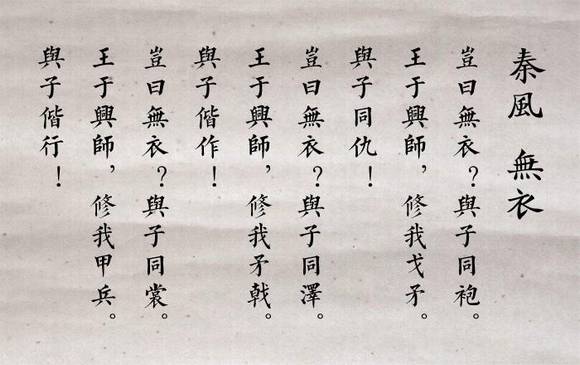 秦風 無衣
豈曰無衣？與子同袍。
王于興師，修我戈矛。
與子同仇！
豈曰無衣？與子同澤。
王于興師，修我矛戟。
與子偕作！
豈曰無衣？與子同裳。
王于興師，修我甲兵。
與子偕行！